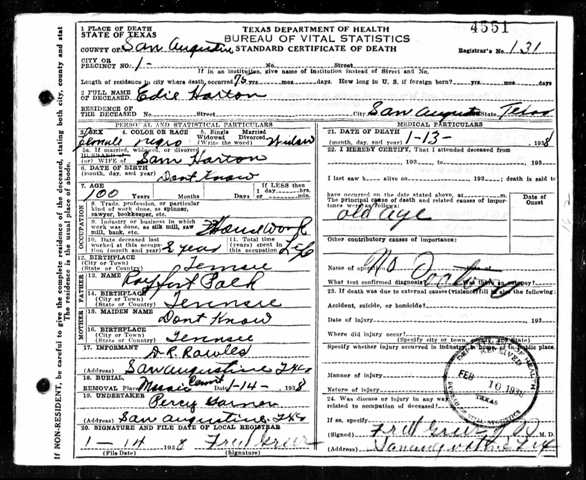 4551
1 PLACE OF DEATH
STATE OF TEXAS
TEXAS DEPARTMENT OF HEALTH
BUREAU OF VITAL STATISTICS
STANDARD CERTIFICATE OF DEATH
COUNTY OF San Augustine
Registrar's No. 131
CITY OR PRECINCT NO. 1- No. Street
If in institution, give name of institution instead of Street and No.
Length of residence in city where death occurred 75 yrs. mos. days. How long in U. S. if foreign born? yrs. mos. days
2 FULL NAME OF DECEASED Edie Horton
RESIDENCE OF THE DECEASED No. Street City San Augustine State Texas
PERSONAL AND STATISTICAL PARTICULARS
3. SEX Female
4. COLOR OR RACE negro
5. Single Married Widowed Divorced (Write the word) Widow
5a. If married, widowed, or divorced
HUSBAND of (or) WIFE of Sam Horton
6. DATE OF BIRTH (month, day, and year) Dont Know
7. AGE 100 Years Months Days
IF LESS than 1 day hrs. min.
OCCUPATION
8. Trade, profession, or particular kind of work done, as spinner, sawyer, bookkeeper, etc.
9. Industry or business in which work was done, as silk mill, saw mill, bank, etc. Housework
10. Date deceased last worked at this occupation (month and year) 8 year
11. Total time (years) spent in this occupation Life
12. BIRTHPLACE (City or Town) (State or Country) Tennsie
FATHER
13. NAME Rayfort Polk
14. BIRTHPLACE (City or Town) (State or Country) Tennsie
MOTHER
15. MAIDEN NAME Dont Know
16. BIRTHPLACE (City or Town) (State or Country) Tennsie
17. INFORMANT D. R. Rawles
(Address) San Augustine Tex
18. BURIAL, REMOVAL Place Date 1-14- 1938
19. UNDERTAKER Percy Garner
(Address) San Augustine Tex
20. SIGNATURE AND FILE DATE OF LOCAL REGISTRAR
1-14 1938 Fred Greer
(File Date) (Signature)
MEDICAL PARTICULARS
21. DATE OF DEATH (month, day, and year) 1-13- 1938
22. I HEREBY CERTIFY, That I attended deceased from
193 , to 193
I last saw h alive on 193 , death is said to
have occurred on the date stated above, at m.
The principal cause of death and related causes of importance were as follows:
Date of Onset
old age
Other contributory causes of importance:
Name of operation No Doctor
What test confirmed diagnosis? Was there an autopsy?
23. If death was due to external causes (violence) fill in the following:
Accident, suicide, or homicide?
Date of injury 193
Where did injury occur?
(Specify city or town, county and state)
Specify whether injury occurred in industry, in home, or in public place.
Manner of injury
Nature of injury
24. Was disease or injury in any way related to occupation of deceased?
If so, specify
(Signed) Fred Greer M. D.
(Address) San Augustine Tex
RECEIVED
FEB 10 1938
TEXAS
If NON-RESIDENT, be careful to give the complete residence of the deceased, stating both city, county and state. The residence is the usual place of abode.